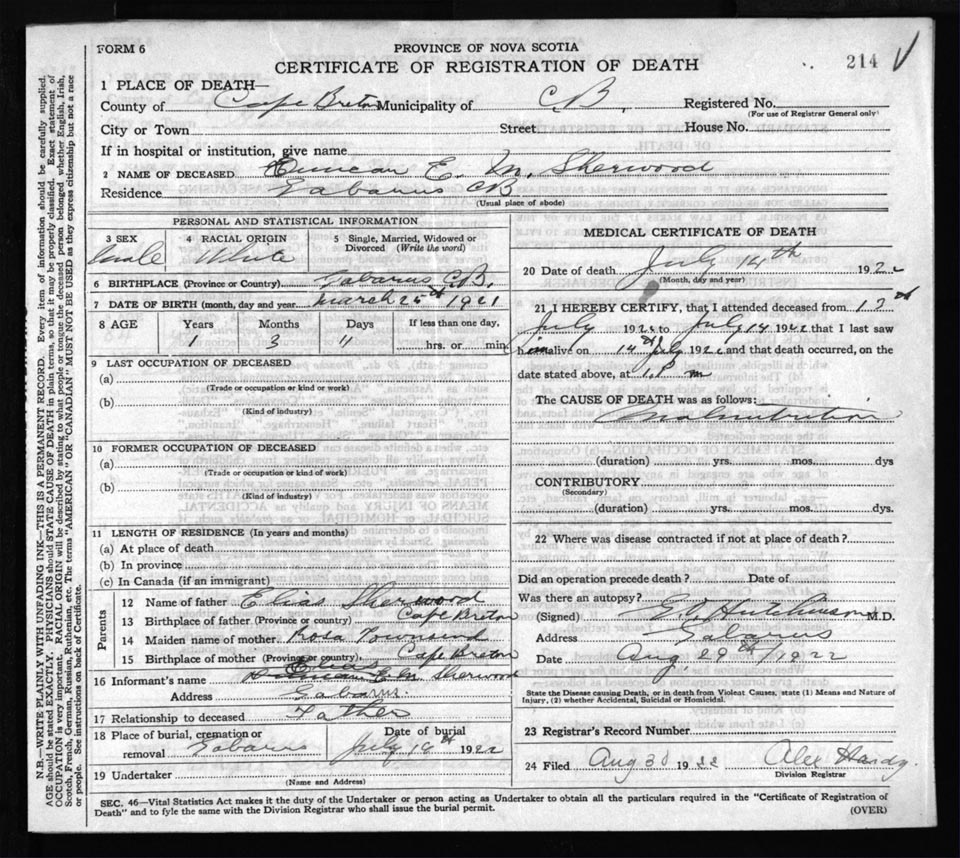 FORM 6
PROVINCE OF NOVA SCOTIA
CERTIFICATE OF REGISTRATION OF DEATH
214 √
1 PLACE OF DEATH—
County of Cape Breton Municipality of C.B. Registered No.
(For use of Registrar General only)
City or Town Street House No.
If in hospital or institution, give name
2 NAME OF DECEASED Duncan E. M. Sherwood
Residence Gabarus CB
(Usual place of abode)
PERSONAL AND STATISTICAL INFORMATION
3 SEX 4 RACIAL ORIGIN 5 Single, Married, Widowed or Divorced (Write the word)
Male White
6 BIRTHPLACE (Province or Country) Gabarus C.B.
7 DATE OF BIRTH (month, day and year) March 25th 1921
8 AGE Years Months Days If less than one day,
1 3 11 hrs. or min.
9 LAST OCCUPATION OF DECEASED
(a)
(Trade or occupation or kind or work)
(b)
(Kind of industry)
10 FORMER OCCUPATION OF DECEASED
(a)
(Trade or occupation or kind of work)
(b)
(Kind of industry)
11 LENGTH OF RESIDENCE (In years and months)
(a) At place of death
(b) In province
(c) In Canada (if an immigrant)
Parents
12 Name of father Elias Sherwood
13 Birthplace of father (Province or country) Cape Breton
14 Maiden name of mother Rosa Townsend
15 Birthplace of mother (Province or country) Cape Breton
Elias
16 Informant's name Duncan E. M. Sherwood
Address Gabarus.
17 Relationship to deceased Father
18 Place of burial, cremation or Date of burial
removal Gabarus July 16th 1922
19 Undertaker
(Name and Address)
MEDICAL CERTIFICATE OF DEATH
20 Date of death July 14th 1922
(Month, day and year)
21 I HEREBY CERTIFY, that I attended deceased from 12th
July 1922 to July 14 1922 that I last saw
him alive on 14th July 1922 and that death occurred, on the
date stated above, at 1. P m
The CAUSE OF DEATH was as follows:
Malnutrition
(duration) yrs. mos. dys
CONTRIBUTORY
(Secondary)
(duration) yrs. mos. dys.
22 Where was disease contracted if not at place of death?
Did an operation precede death? Date of
Was there an autopsy?
(Signed) Hutchinson M.D.
Address Gabarus
Date Aug. 29th/1922
State the Disease causing Death, or in death from Violent Causes, state (1) Means and Nature of
Injury, (2) whether Accidental, Suicidal or Homicidal.
23 Registrar's Record Number
24 Filed Aug 30 1922 Alex Hardy.
Division Registrar
SEC. 46—Vital Statistics Act makes it the duty of the Undertaker or person acting as Undertaker to obtain all the particulars required in the "Certificate of Registration of
Death" and to fyle the same with the Division Registrar who shall issue the burial permit. (OVER)
N.B.—WRITE PLAINLY WITH UNFADING INK—THIS IS A PERMANENT RECORD. Every item of information should be carefully supplied.
AGE should be stated EXACTLY. PHYSICIANS should STATE CAUSE OF DEATH in plain terms, so that it may be properly classified. Exact statement of
OCCUPATION is very important. RACIAL ORIGIN will be described by stating to what people or tongue the deceased person belonged whether English, Irish,
Scotch, French, German, Russian, Ruthenian, etc. The terms "AMERICAN" OR "CANADIAN" MUST NOT BE USED as they express citizenship but not a race
or people. See instructions on back of Certificate.